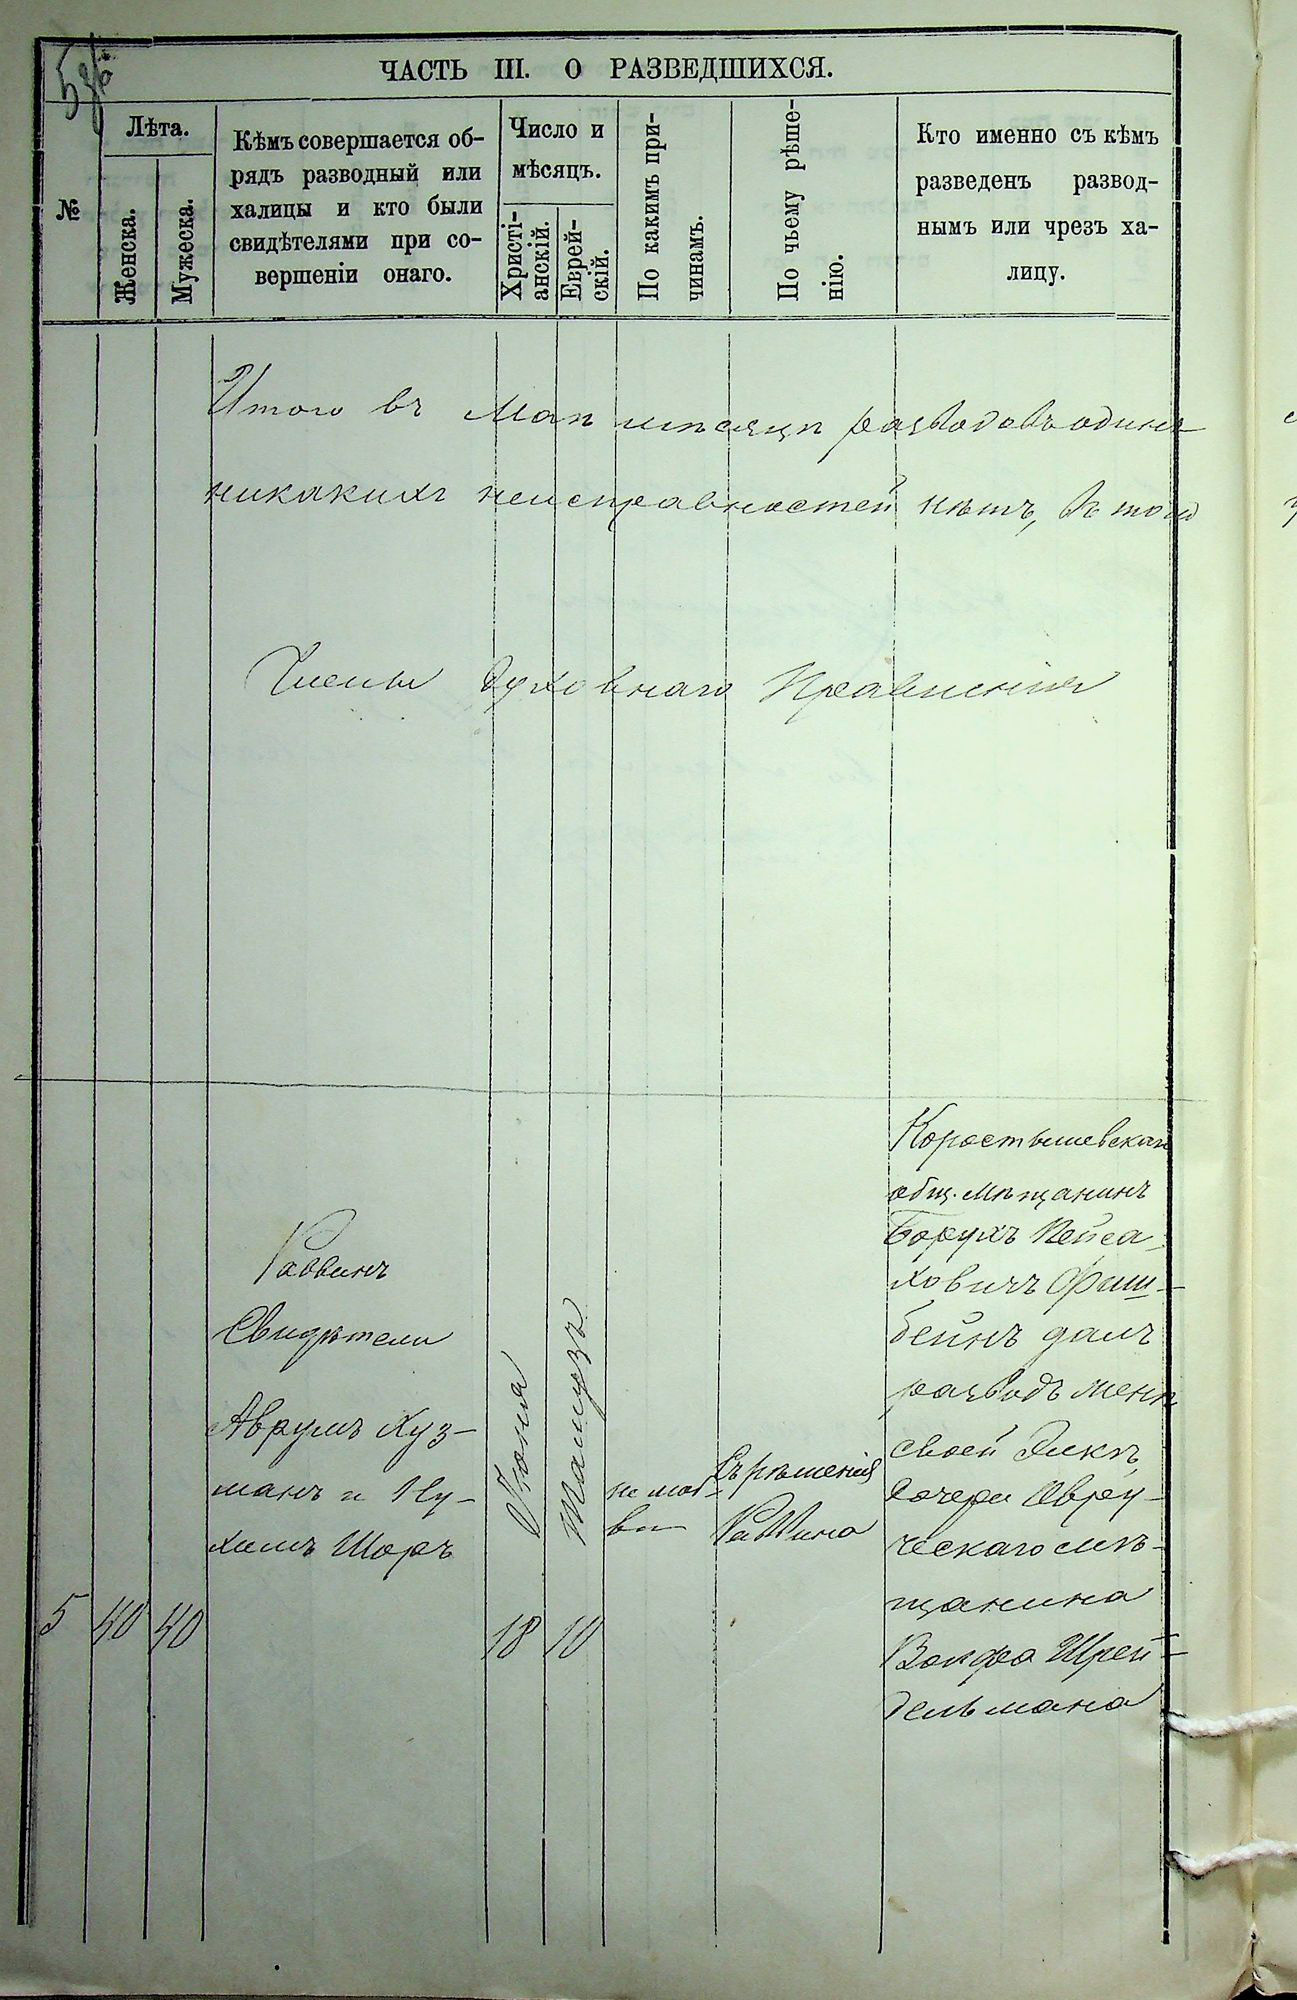 ЧАСТЬ III. О РАЗВЕДШИХСЯ.
№
Лѣта.
Женска.
Мужеска.
Кѣмъ совершается об-
рядъ разводный или
халицы и кто были
свидѣтелями при со-
вершеніи онаго.
Число и
мѣсяцъ.
Христі-
анскій.
Еврей-
скій.
По какимъ при-
чинамъ.
По чьему рѣше-
нію.
Кто именно съ кѣмъ
разведенъ развод-
нымъ или чрезъ ха-
лицу.
Итого въ Маѣ мѣсяцѣ разводовъ одинъ
никакихъ неисправностей нѣтъ, въ томъ
Члены Духовнаго Правленія
5
40
40
Раввинъ
Свидѣтели
Аврумъ Хуз-
манъ и Ну-
химъ Шоръ
Іюня
18
Тамузъ
10
не люб-
ви
Съ рѣшенія
Раввина
Коростышевскаго
общ. мѣщанинъ
Борухъ Пейса-
ховичъ Фиш-
бейнъ далъ
разводъ женѣ
своей Элькѣ,
дочери Овруч-
ческаго мѣ-
щанина
Вольфа Шрей-
дельмана